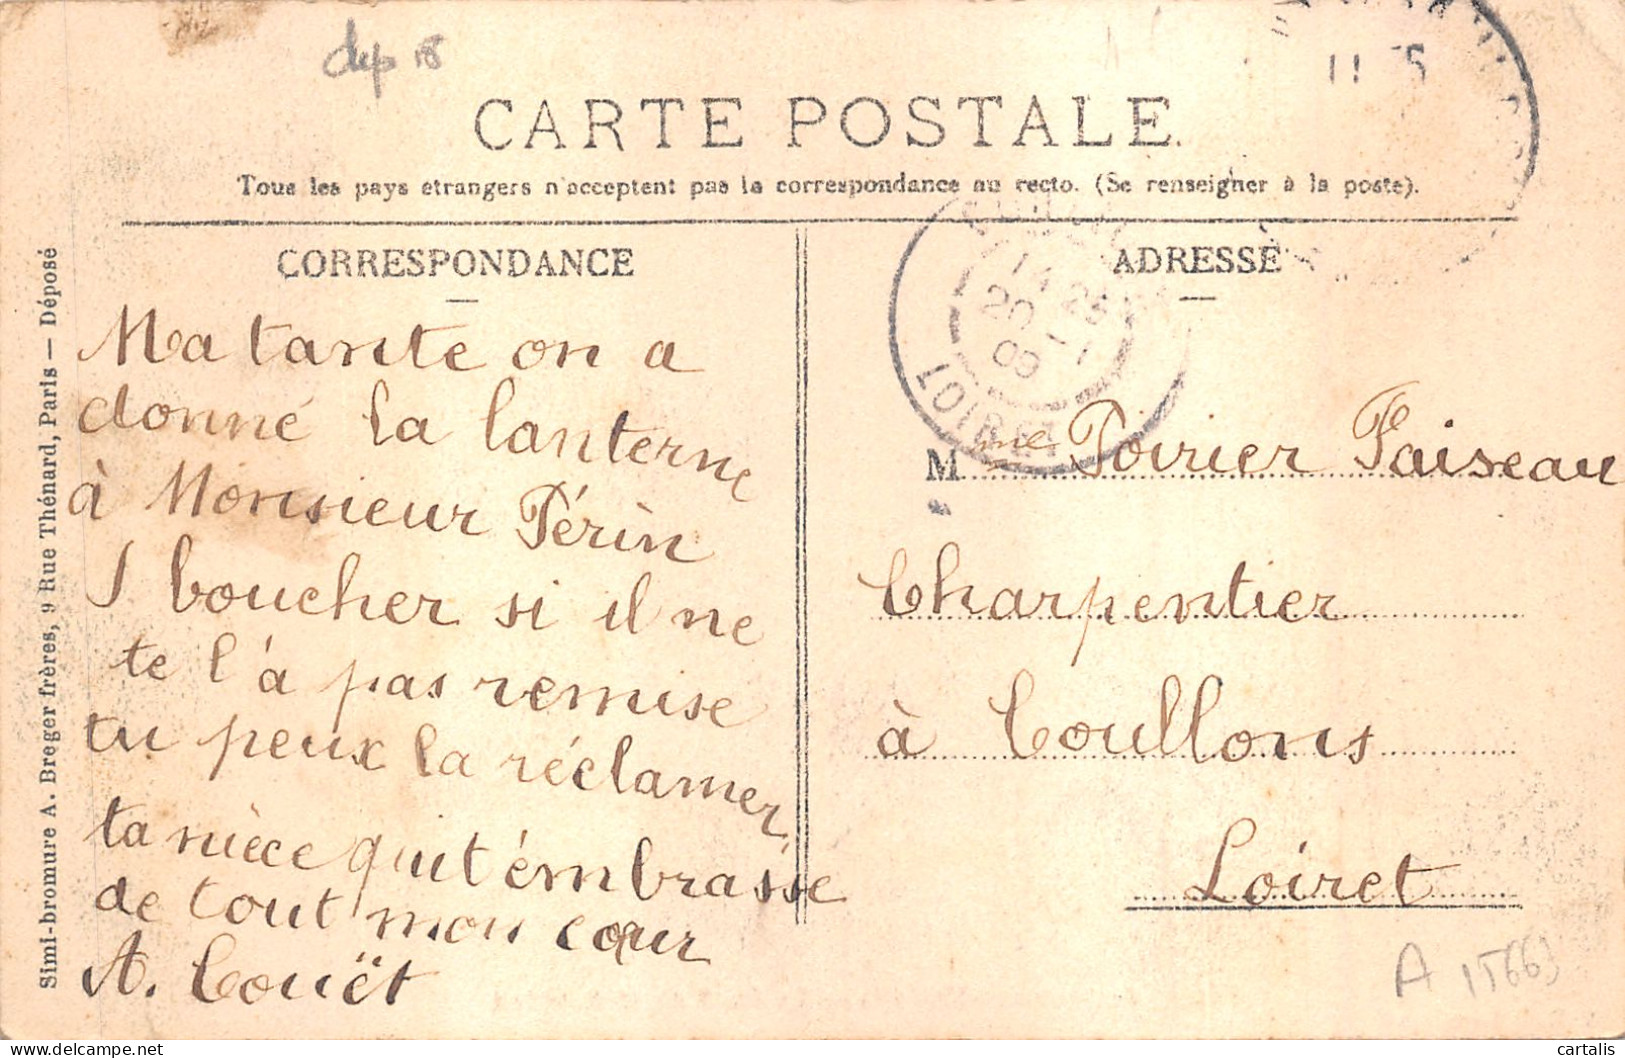 dep 18
11 5
CARTE POSTALE
Tous les pays étrangers n'acceptent pas la correspondance au recto. (Se renseigner à la poste).
CORRESPONDANCE
Ma tante on a
donné la lanterne
à Monsieur Périn
boucher si il ne
te l'á pas remise
tu peux la réclamer
ta nièce qui t'émbrasse
de tout mon cœur
A. Couët
ADRESSE
14 25
20 - 1
09
LOIRET
Mme Poirier Faiseau
Charpentier
à Coullons
Loiret
Simi-bromure A. Breger frères, 9 Rue Thénard, Paris — Déposé
A 15663
cartalis